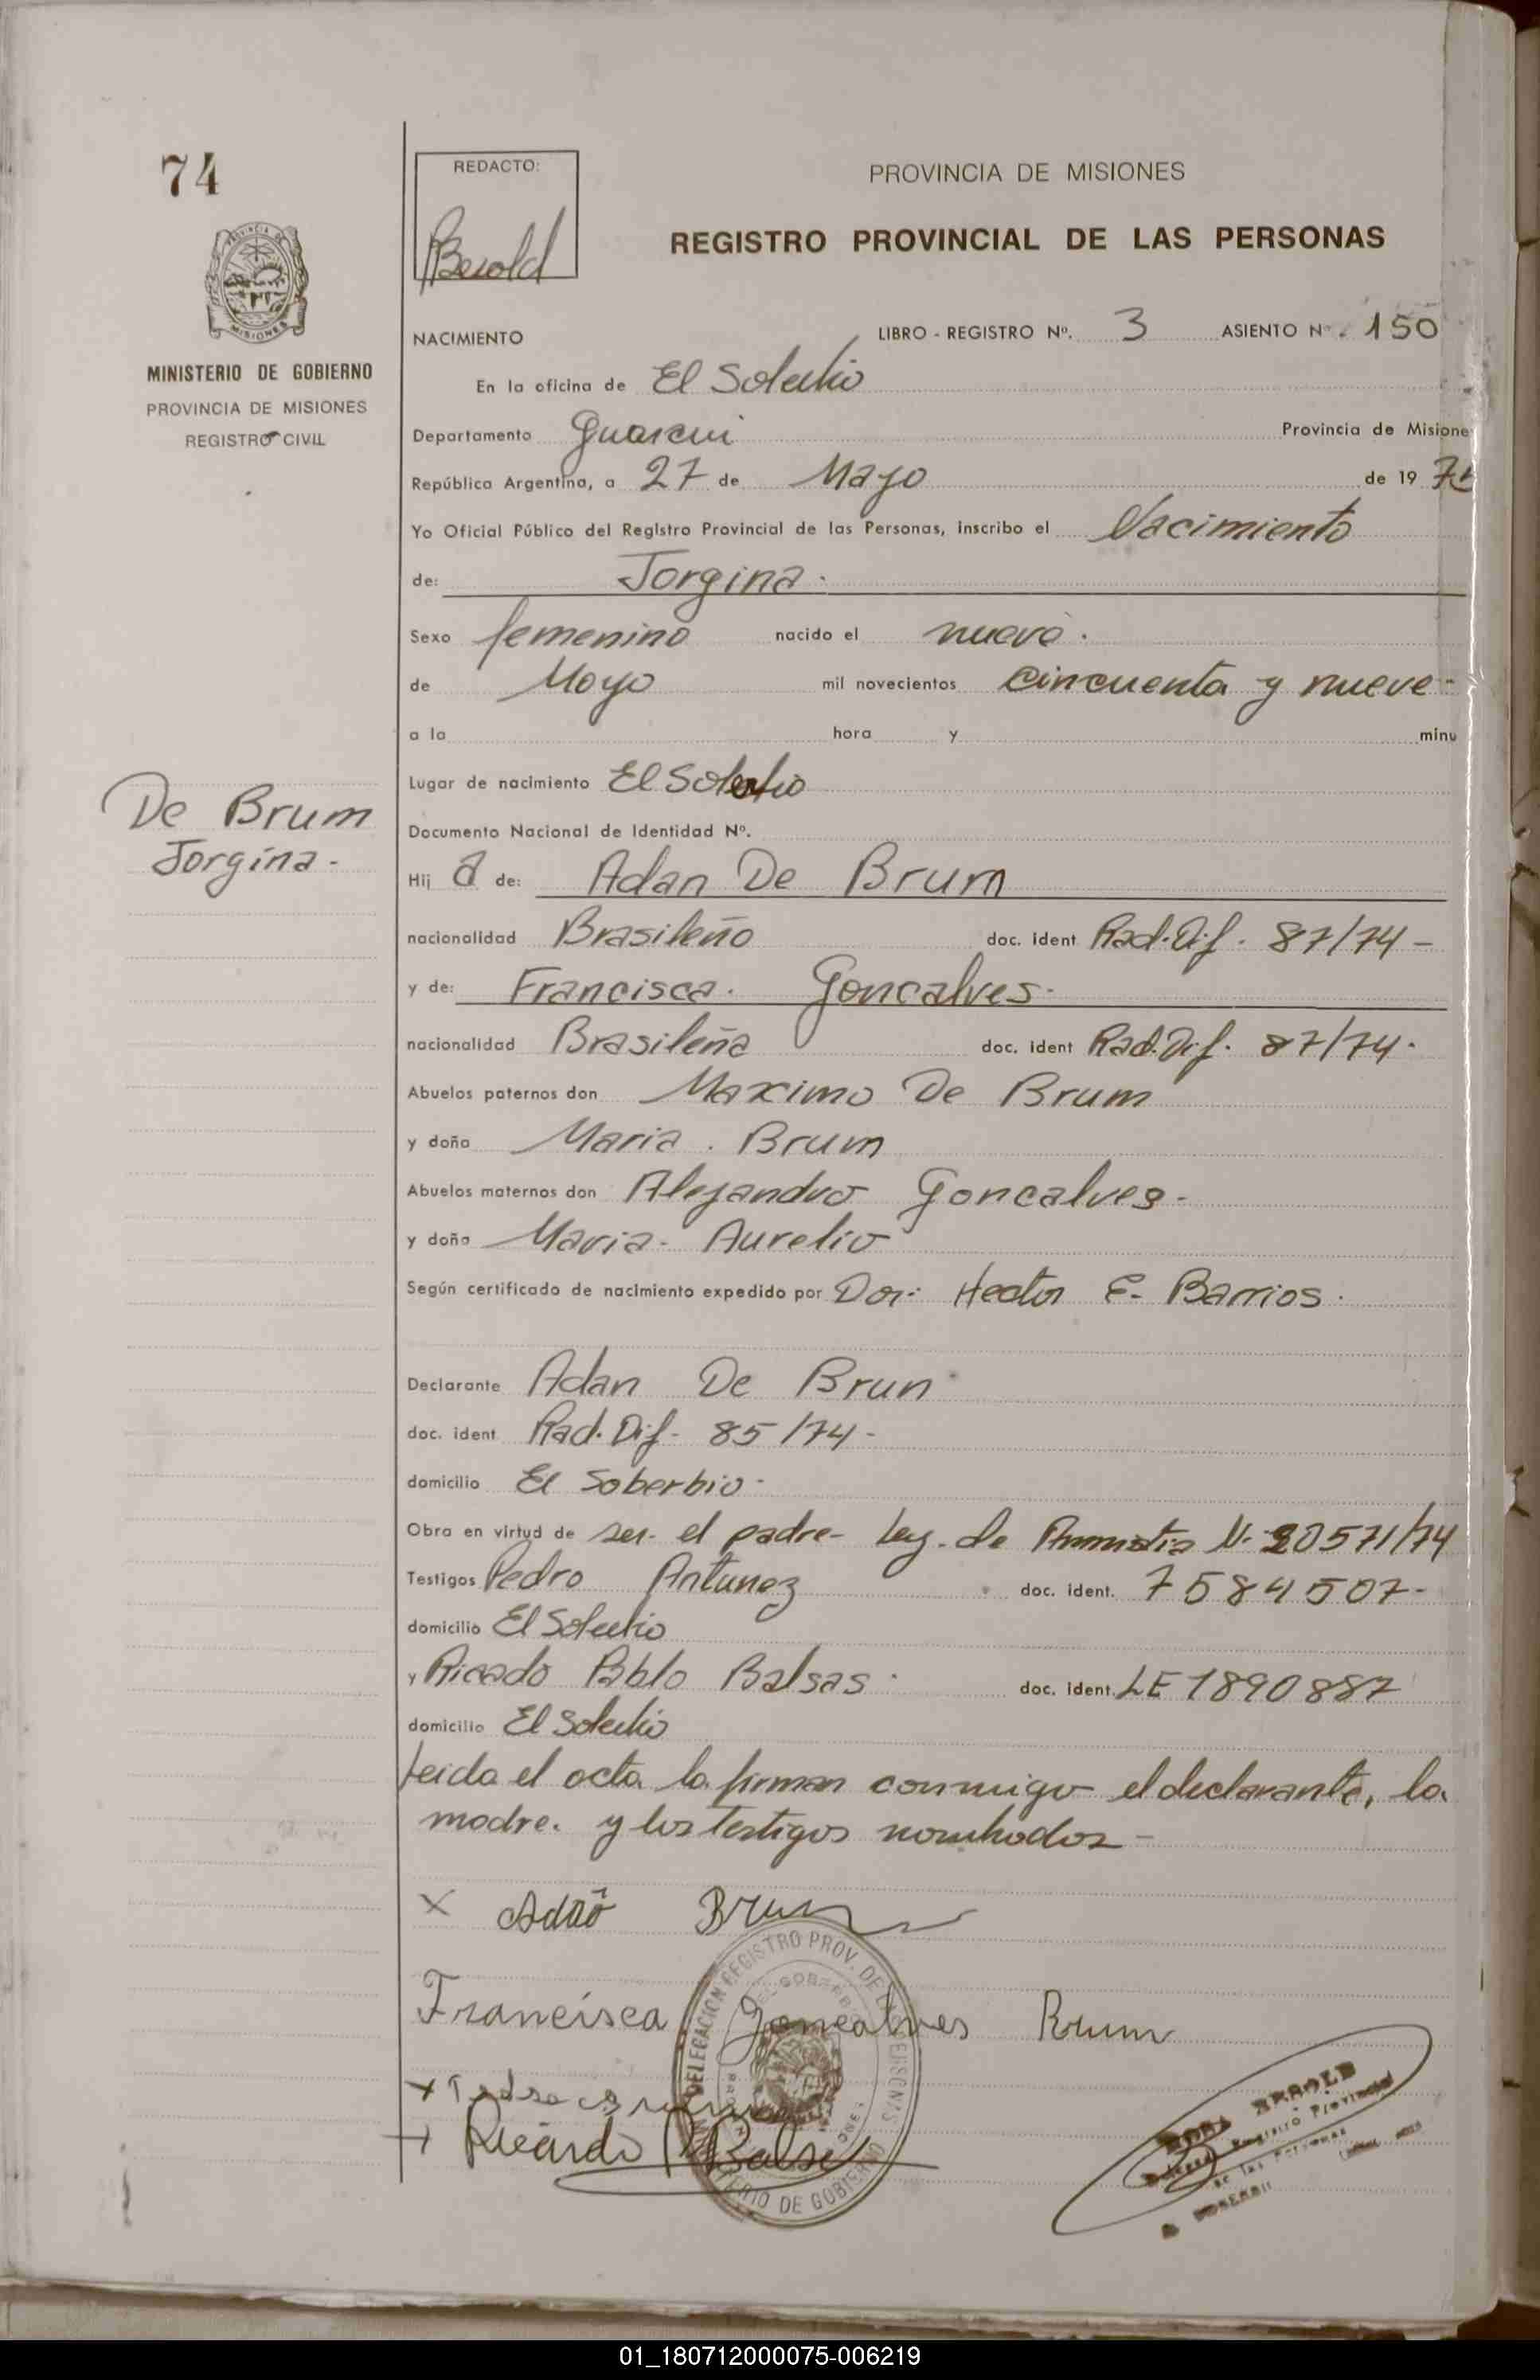 74
REDACTO:
PROVINCIA DE MISIONES
REGISTRO PROVINCIAL DE LAS PERSONAS
MISIONES
MINISTERIO DE GOBIERNO
PROVINCIA DE MISIONES
REGISTRO CIVIL
NACIMIENTO
LIBRO - REGISTRO Nº. 3 ASIENTO Nº. 150
En la oficina de El Soberbio
Departamento Guarani Provincia de Misione
República Argentina, a 27 de Mayo de 19
Yo Oficial Público del Registro Provincial de las Personas, inscribo el Nacimiento
de: Jorgina.
Sexo femenino nacido el nueve.
de Mayo mil novecientos cincuenta y nueve-
a la hora y minu
Lugar de nacimiento El Soberbio
De Brum
Jorgina-
Documento Nacional de Identidad Nº.
Hij a de: Adan De Brum
nacionalidad Brasileño doc. ident Rad. Dif. 87/74-
y de: Francisca. Goncalves-
nacionalidad Brasileña doc. ident Rad. Dif. 87/74.
Abuelos paternos don Maximo De Brum
y doña Maria. Brum
Abuelos maternos don Alejandro Goncalves-
y doña Maria- Aurelio
Según certificado de nacimiento expedido por Dor: Hector E- Barrios.
Declarante Adan De Brun
doc. ident Rad. Dif- 85/74-
domicilio El Soberbio-
Obra en virtud de ser- el padre- Ley. de Amnistia N- 20571/74
Testigos Pedro Antunez doc. ident. 7584507-
domicilio El Soberbio
y Ricado Pablo Balsas. doc. ident. LE 1890887
domicilio El Soberbio
Leida el acta la firman conmigo el declarante, la
madre. y los testigos nombrados-
x Adão Brum
Francisca Goncalves Brum
Ricardo P Balsa
DELEGACION REGISTRO PROV. DE LAS PERSONAS
MINISTERIO DE GOBIERNO
Registro Provincial
de las Personas
01_180712000075-006219